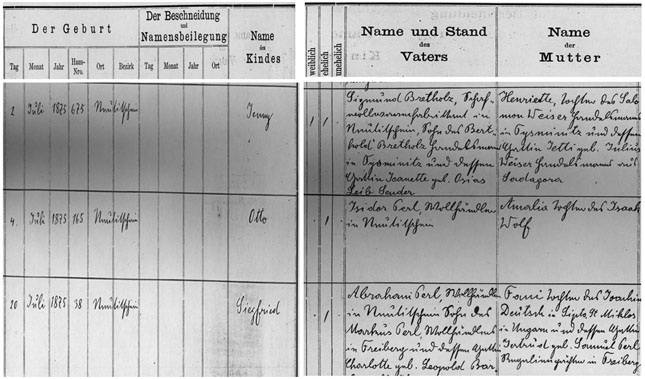 Der Geburt
Der Beschneidung
und
Namensbeilegung
Name
des
Kindes
Tag Monat Jahr Haus-Nro. Ort Bezirk Tag Monat Jahr Ort
weiblich
ehelich
unehelich
Name und Stand
des
Vaters
Name
der
Mutter
2 Juli 1875 675 Neutitschein
Jenny
1 1
Sigmund Bretholz, Schaf-
wollwarenfabrikant in
Neutitschein, Sohn des Bert-
hold Bretholz Handelsmann
in Tysmienitz und dessen
Gattin Jeanette geb. Osias
Leib Sender
Henriette, Tochter des Salo-
mon Weiser Handelsmanns
in Tysminitz und dessen
Gattin Jetti geb. Julius
Weiser Handelsmanns aus
Sadagora
4. Juli 1875 165 Neutitschein
Otto
1
Isidor Perl, Wollhändler
in Neutitschein
Amalia Tochter des Isaak
Wolf
20 Juli 1875 38 Neutitschein
Siegfried
1
Abraham Perl, Wollhändler
in Neutitschein Sohn des
Markus Perl, Wollhändlers
in Freiberg und dessen Gattin
Charlotte geb. Leopold
Fani Tochter des Joachim
Deutsch in Lipto St Miklos
in Ungarn und dessen Gattin
Gertrud geb. Samuel Perl
in Freiberg